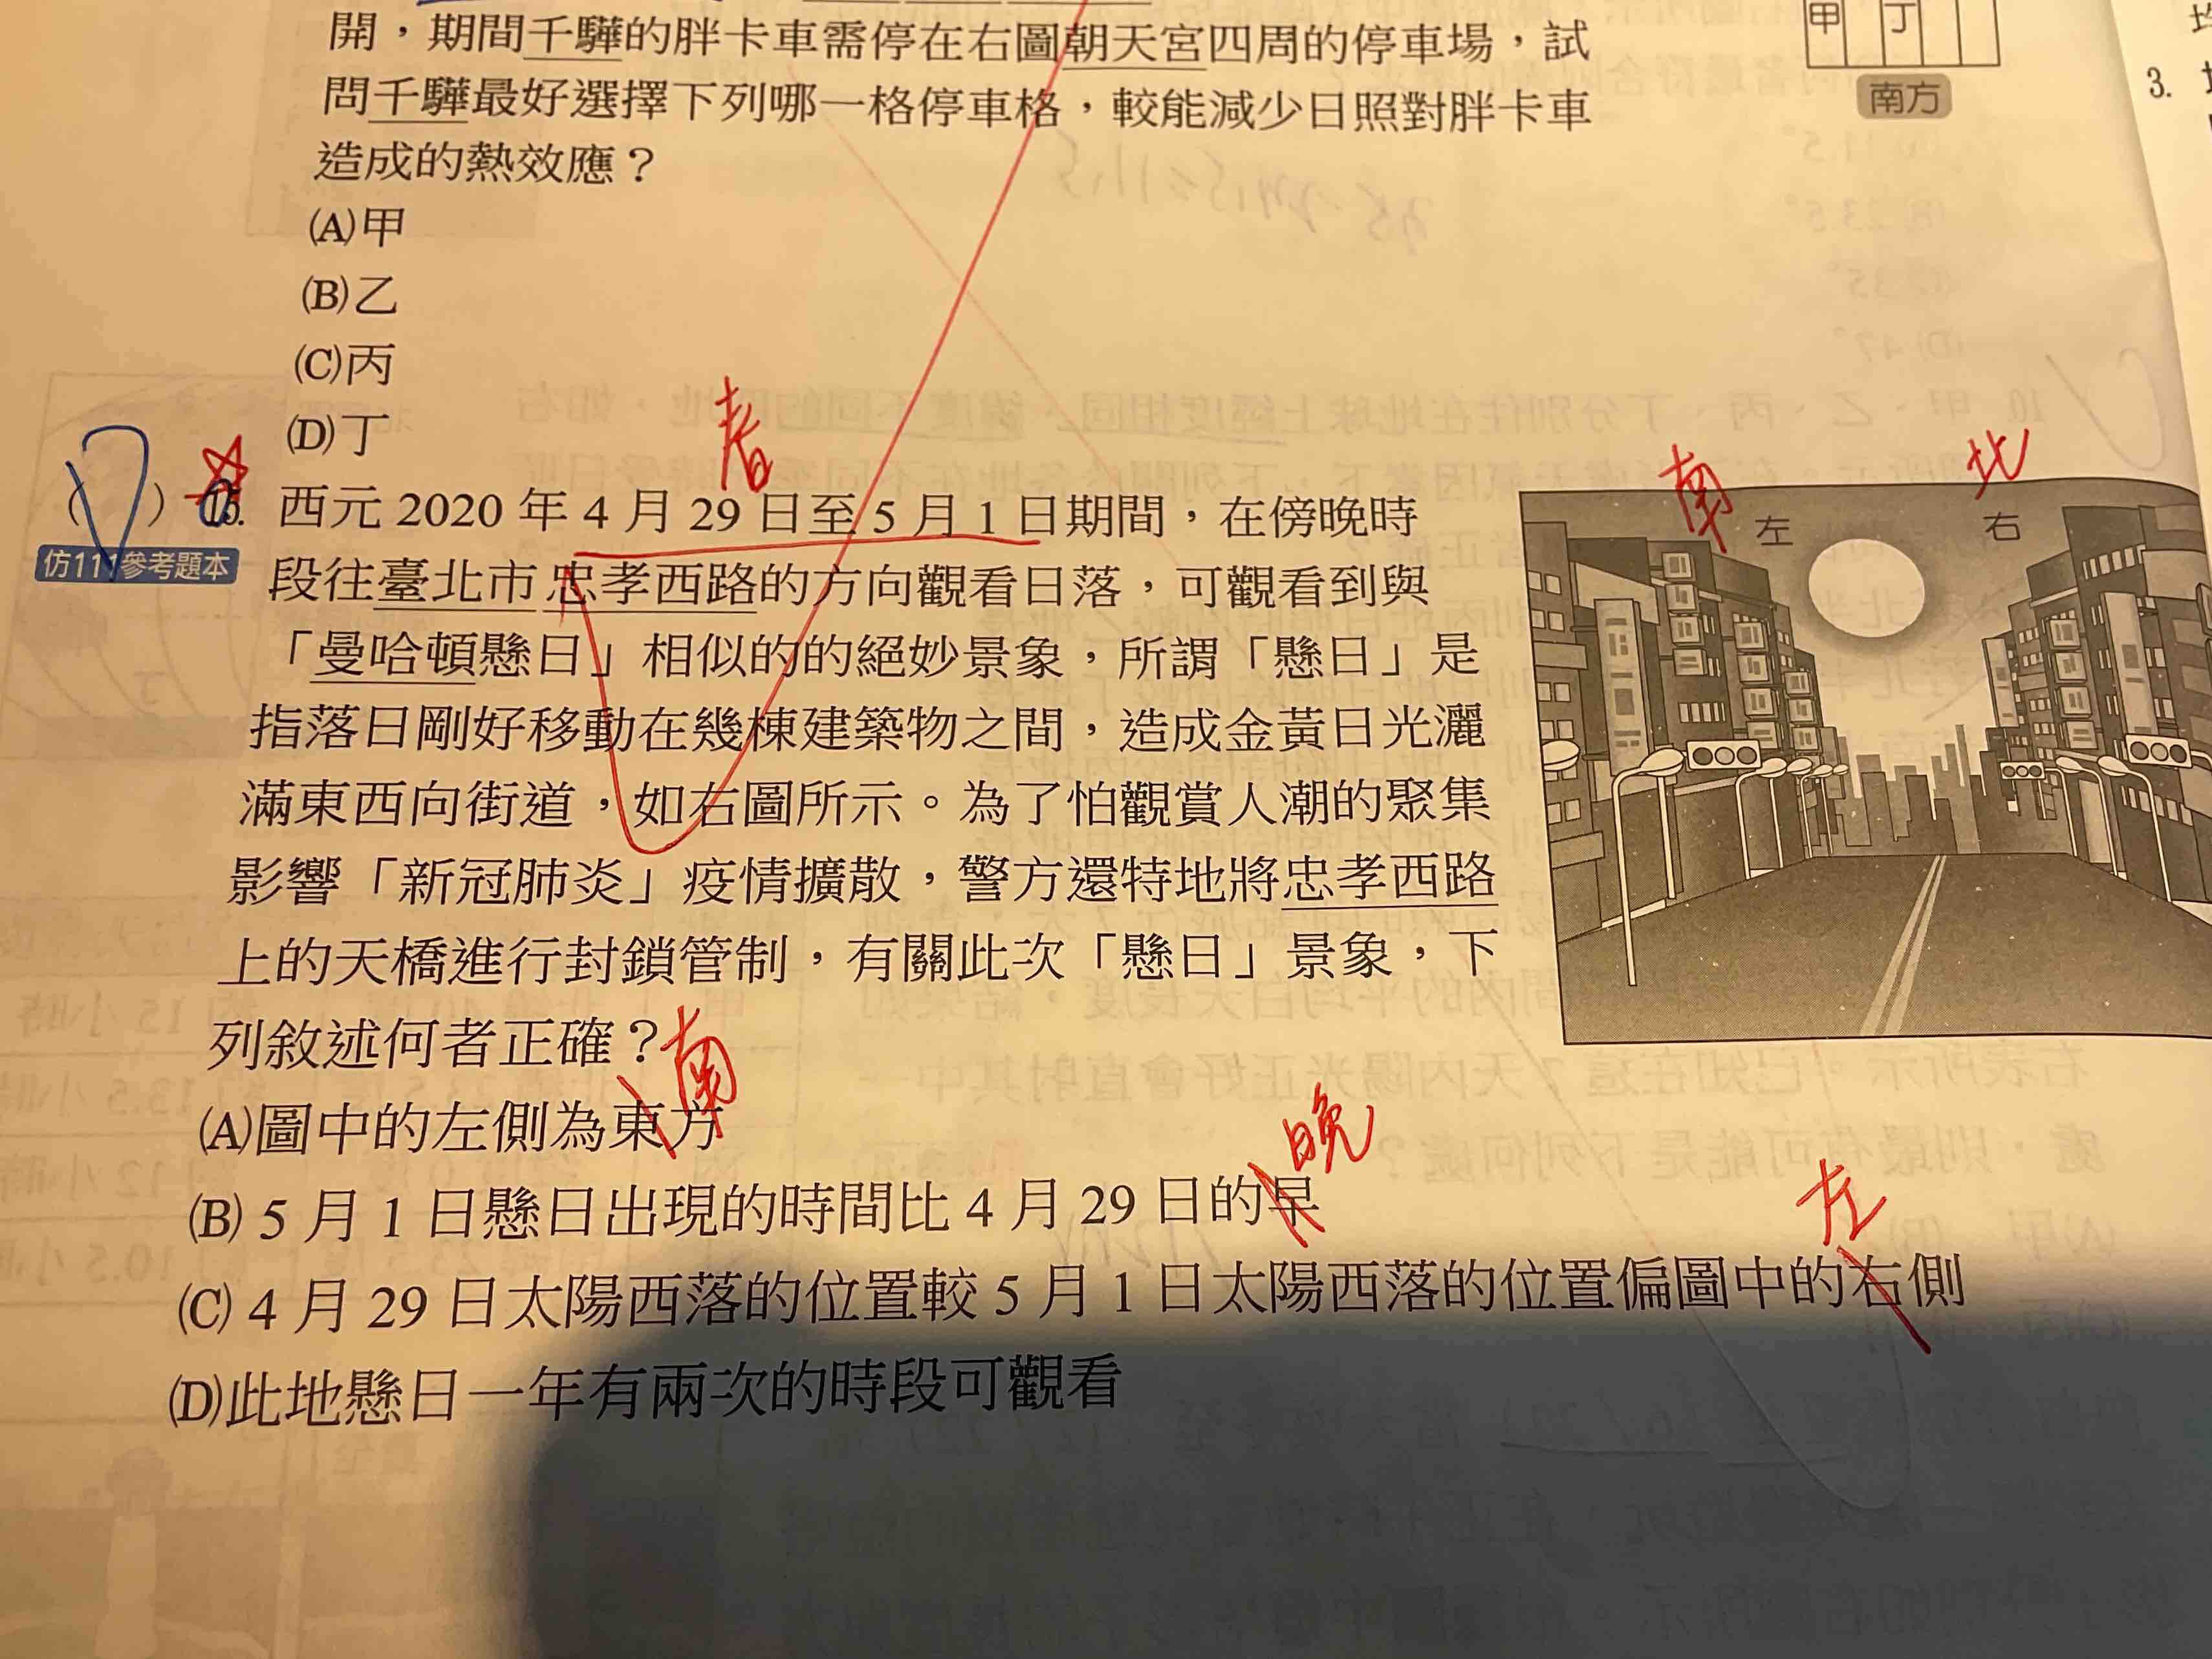 開，期間千驊的胖卡車需停在右圖朝天宮四周的停車場，試
問千驊最好選擇下列哪一格停車格，較能減少日照對胖卡車
造成的熱效應？
(A)甲
(B)乙
(C)丙
(D)丁
甲 丁
南方
3.
春
( ) 15. 西元 2020 年 4 月 29 日至 5 月 1 日期間，在傍晚時
仿111參考題本
段往臺北市忠孝西路的方向觀看日落，可觀看到與
「曼哈頓懸日」相似的的絕妙景象，所謂「懸日」是
指落日剛好移動在幾棟建築物之間，造成金黃日光灑
滿東西向街道，如右圖所示。為了怕觀賞人潮的聚集
影響「新冠肺炎」疫情擴散，警方還特地將忠孝西路
上的天橋進行封鎖管制，有關此次「懸日」景象，下
列敘述何者正確？
南 北
左 右
南
(A)圖中的左側為東方
晚
(B) 5 月 1 日懸日出現的時間比 4 月 29 日的早
左
(C) 4 月 29 日太陽西落的位置較 5 月 1 日太陽西落的位置偏圖中的右側
(D)此地懸日一年有兩次的時段可觀看